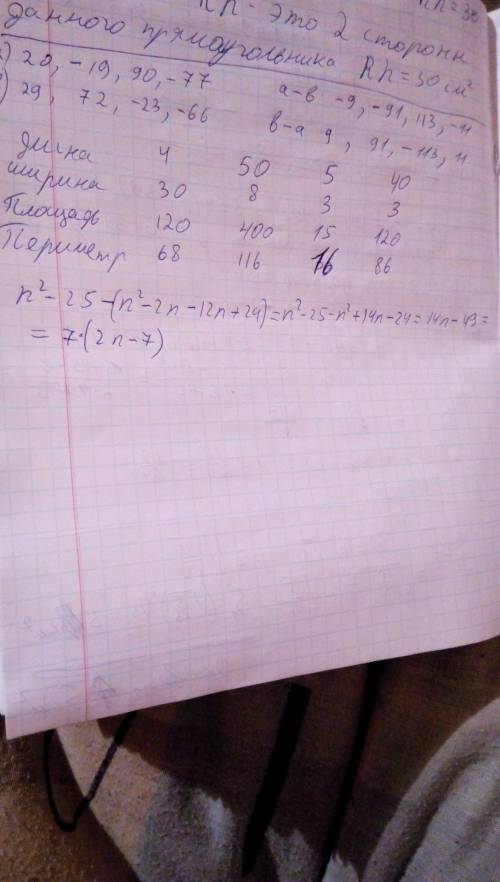 Rh - это 2 сторон
Rh = 30
данного прямоугольника Rh = 30 см²
) 20, -19, 90, -77
а-в -9, -91, 113, -11
) 29, 72, -23, -66
в-а 9, 91, -113, 11
длина 4 50 5 40
ширина 30 8 3 3
Площадь 120 400 15 120
Периметр 68 116 16 86
n²-25-(n²-2n-12n+24)=n²-25-n²+14n-24=14n-49=
= 7·(2n-7)